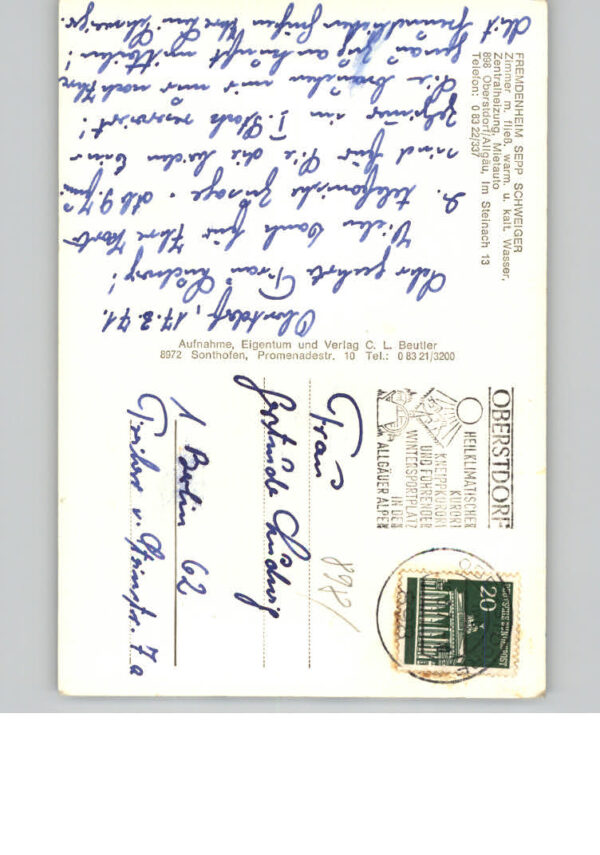 FREMDENHEIM SEPP SCHWEIGER
Zimmer m. fließ. warm. u. kalt. Wasser,
Zentralheizung, Mietauto
898 Oberstdorf/Allgäu, Im Steinach 13
Telefon: 0 83 22/337
Oberstdorf, 17.3.71.
Sehr geehrte Frau Ludwig!
Vielen Dank für Ihre Karte
u. telefonische Zusage. Ab 9. Juni
sind für Sie die beiden Einz
zimmer im I. Stock reserviert!
Sie brauchen mir nur noch Ihre
genau Zug ankunft mitteilen!
Mit freundlichen Grüßen Ihre Fam. Schweiger
Aufnahme, Eigentum und Verlag C. L. Beutler
8972 Sonthofen, Promenadestr. 10 Tel.: 0 83 21/3200
OBERSTDORF
HEILKLIMATISCHER
KURORT
KNEIPPKURORT
UND FÜHRENDER
WINTERSPORTPLATZ
IN DEN
ALLGÄUER ALPEN
20
DEUTSCHE BUNDESPOST
898/
Frau
Gertrude Ludwig
1 Berlin 62
v. Steinstr. 7a